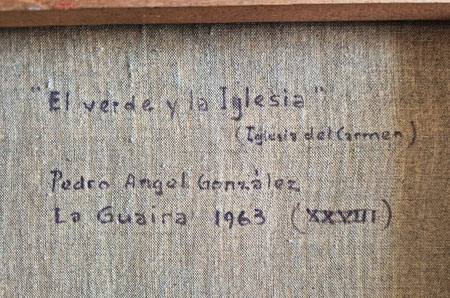 "El verde y la Iglesia"
(Iglesia del Carmen)
Pedro Angel González
La Guaira 1963 (XXVIII)